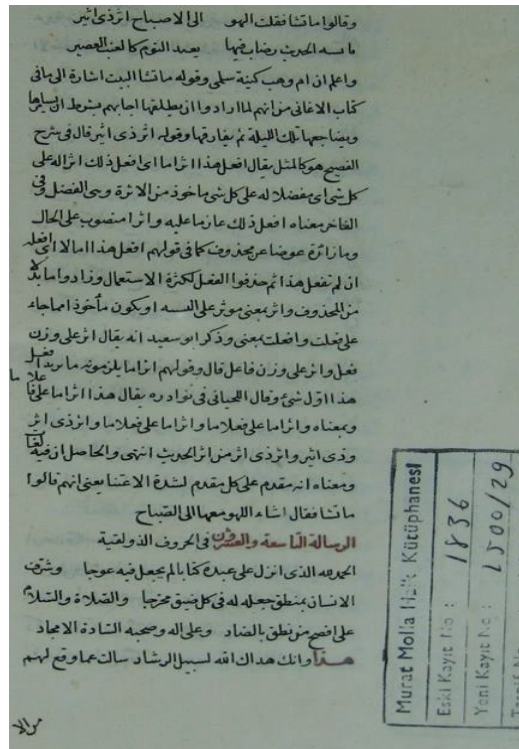 وقالوا ما تشا فقلت الهو الى الاصباح اثر ذي اثير
بآنسة الحديث رضاب فيها بعيد النوم كالعنب العصير
واعلم ان ام وهب كنية سلمى وقوله ما تشا البيت اشارة الى ما في
كتاب الاغاني من انهم لما ارادوا ان يطلقها اجابهم بشرط ان يسايرها
ويضاجعها تلك الليلة ثم يفارقها وقوله اثر ذي اثير قال في شرح
الفصيح هو كالمثل يقال افعل هذا اثرا ما اي افعل ذلك اثرا له على
كل شي اي مفضلا له على كل شي ماخوذ من الاثرة وهي الفضل وفي
الفاخر معناه افعل ذلك عازما عليه واثرا منصوب على الحال
وما زائدة عوضا عن محذوف كما في قولهم افعل هذا اما لا اي افعله
ان لم تفعل هذا ثم حذفوا الفعل لكثرة الاستعمال وزادوا ما بدلا
من المحذوف واثر بمعنى موثر على او يكون مأخوذ امما جاء
على فعلت وافعلت بمعنى وذكر ابو سعيد انه يقال اثر على وزن
فعل واثر على وزن فاعل قال وقولهم اثرا ما يلزمونه ما نريد افعل
هذا اول شئ وقال اللحياني في نوادره يقال هذا اثرا ما على فا
علا ما
وبمعناه واثرا ما على فعلا ما واثرا ما على فعلا ما واثر ذي اثر
وذي اثير واثر ذي اثر من اثر الحديث انتهى والحاصل ان فيه لغا
ومعناه انه مقدم على كل مقدم لشدة الاعتنا يعني انهم قالوا
ما تشا فقال اشاء اللهو معها الى الصباح
الرسالة التاسعة والعشرون في الحروف الذولقية
الحمد لله الذي انزل على عبده كتابا لم يجعل فيه عوجا وشرف
الانسان بمنطق جعله له في كل ضيق مخرجا والصلاة والسلام
على افصح من نطق بالضاد وعلى اله وصحبه السادة الامجاد
هذا وانك هداك الله لسبيل الرشاد سالت عما وقع لهم
من الا
Murat Molla Halk Kütüphanesi
Eski Kayıt No : 1836
Yeni Kayıt No : 1500/29
Tasnif No